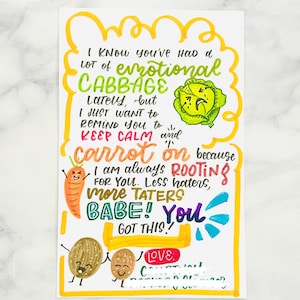 I KNOW YOU'VE HAD A
LOT OF emotional
CABBAGE
LATELY, but
I JUST WANT TO
REMIND YOU TO
KEEP CALM and
carrot on because
I AM always ROOTING
FOR YOU. Less haters,
more TATERS
BABE! You
GOT THIS!
LOVE,